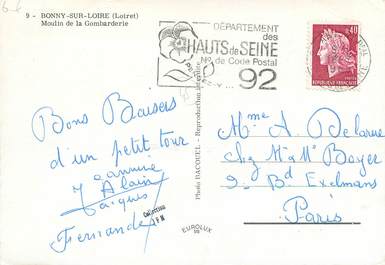 9 - BONNY-SUR-LOIRE (Loiret)
Moulin de la Gombarderie
DÉPARTEMENT
des
HAUTS de SEINE
No de Code Postal
PENSEZ-Y...
92
0,40
RÉPUBLIQUE FRANÇAISE
Bons Baisers
d'un petit tour
Jeannine
Alain
Jacques
Fernande
Collection
F M
Photo BACQUEL - Reproduction interdite
EUROLUX
Mme A Delarue
Chez M. & Me Boyer
9 - Bd Exelmans
Paris